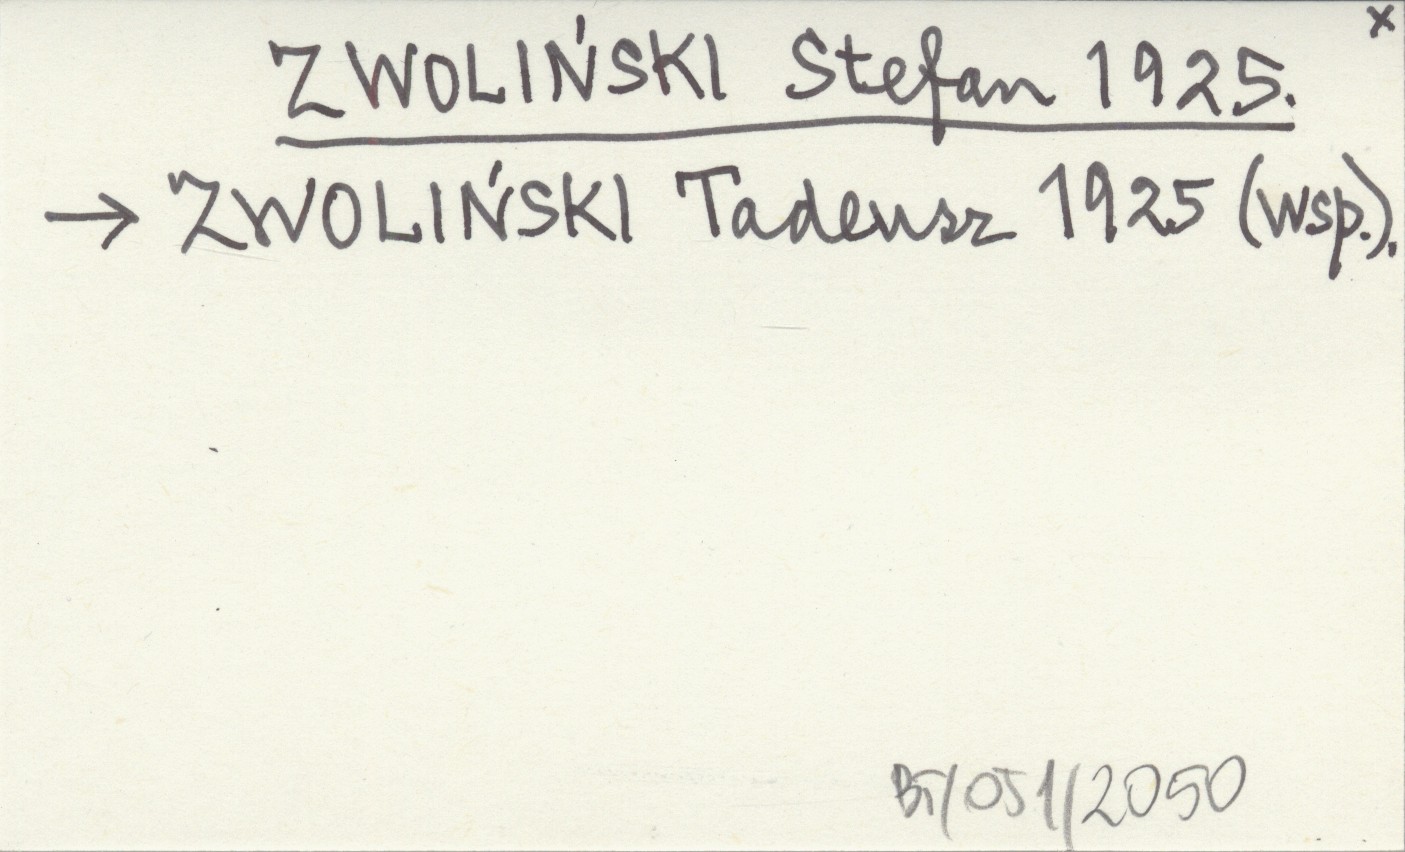 x
ZWOLIŃSKI Stefan 1925.
→ ZWOLIŃSKI Tadeusz 1925 (wsp.).
BT/051/2050